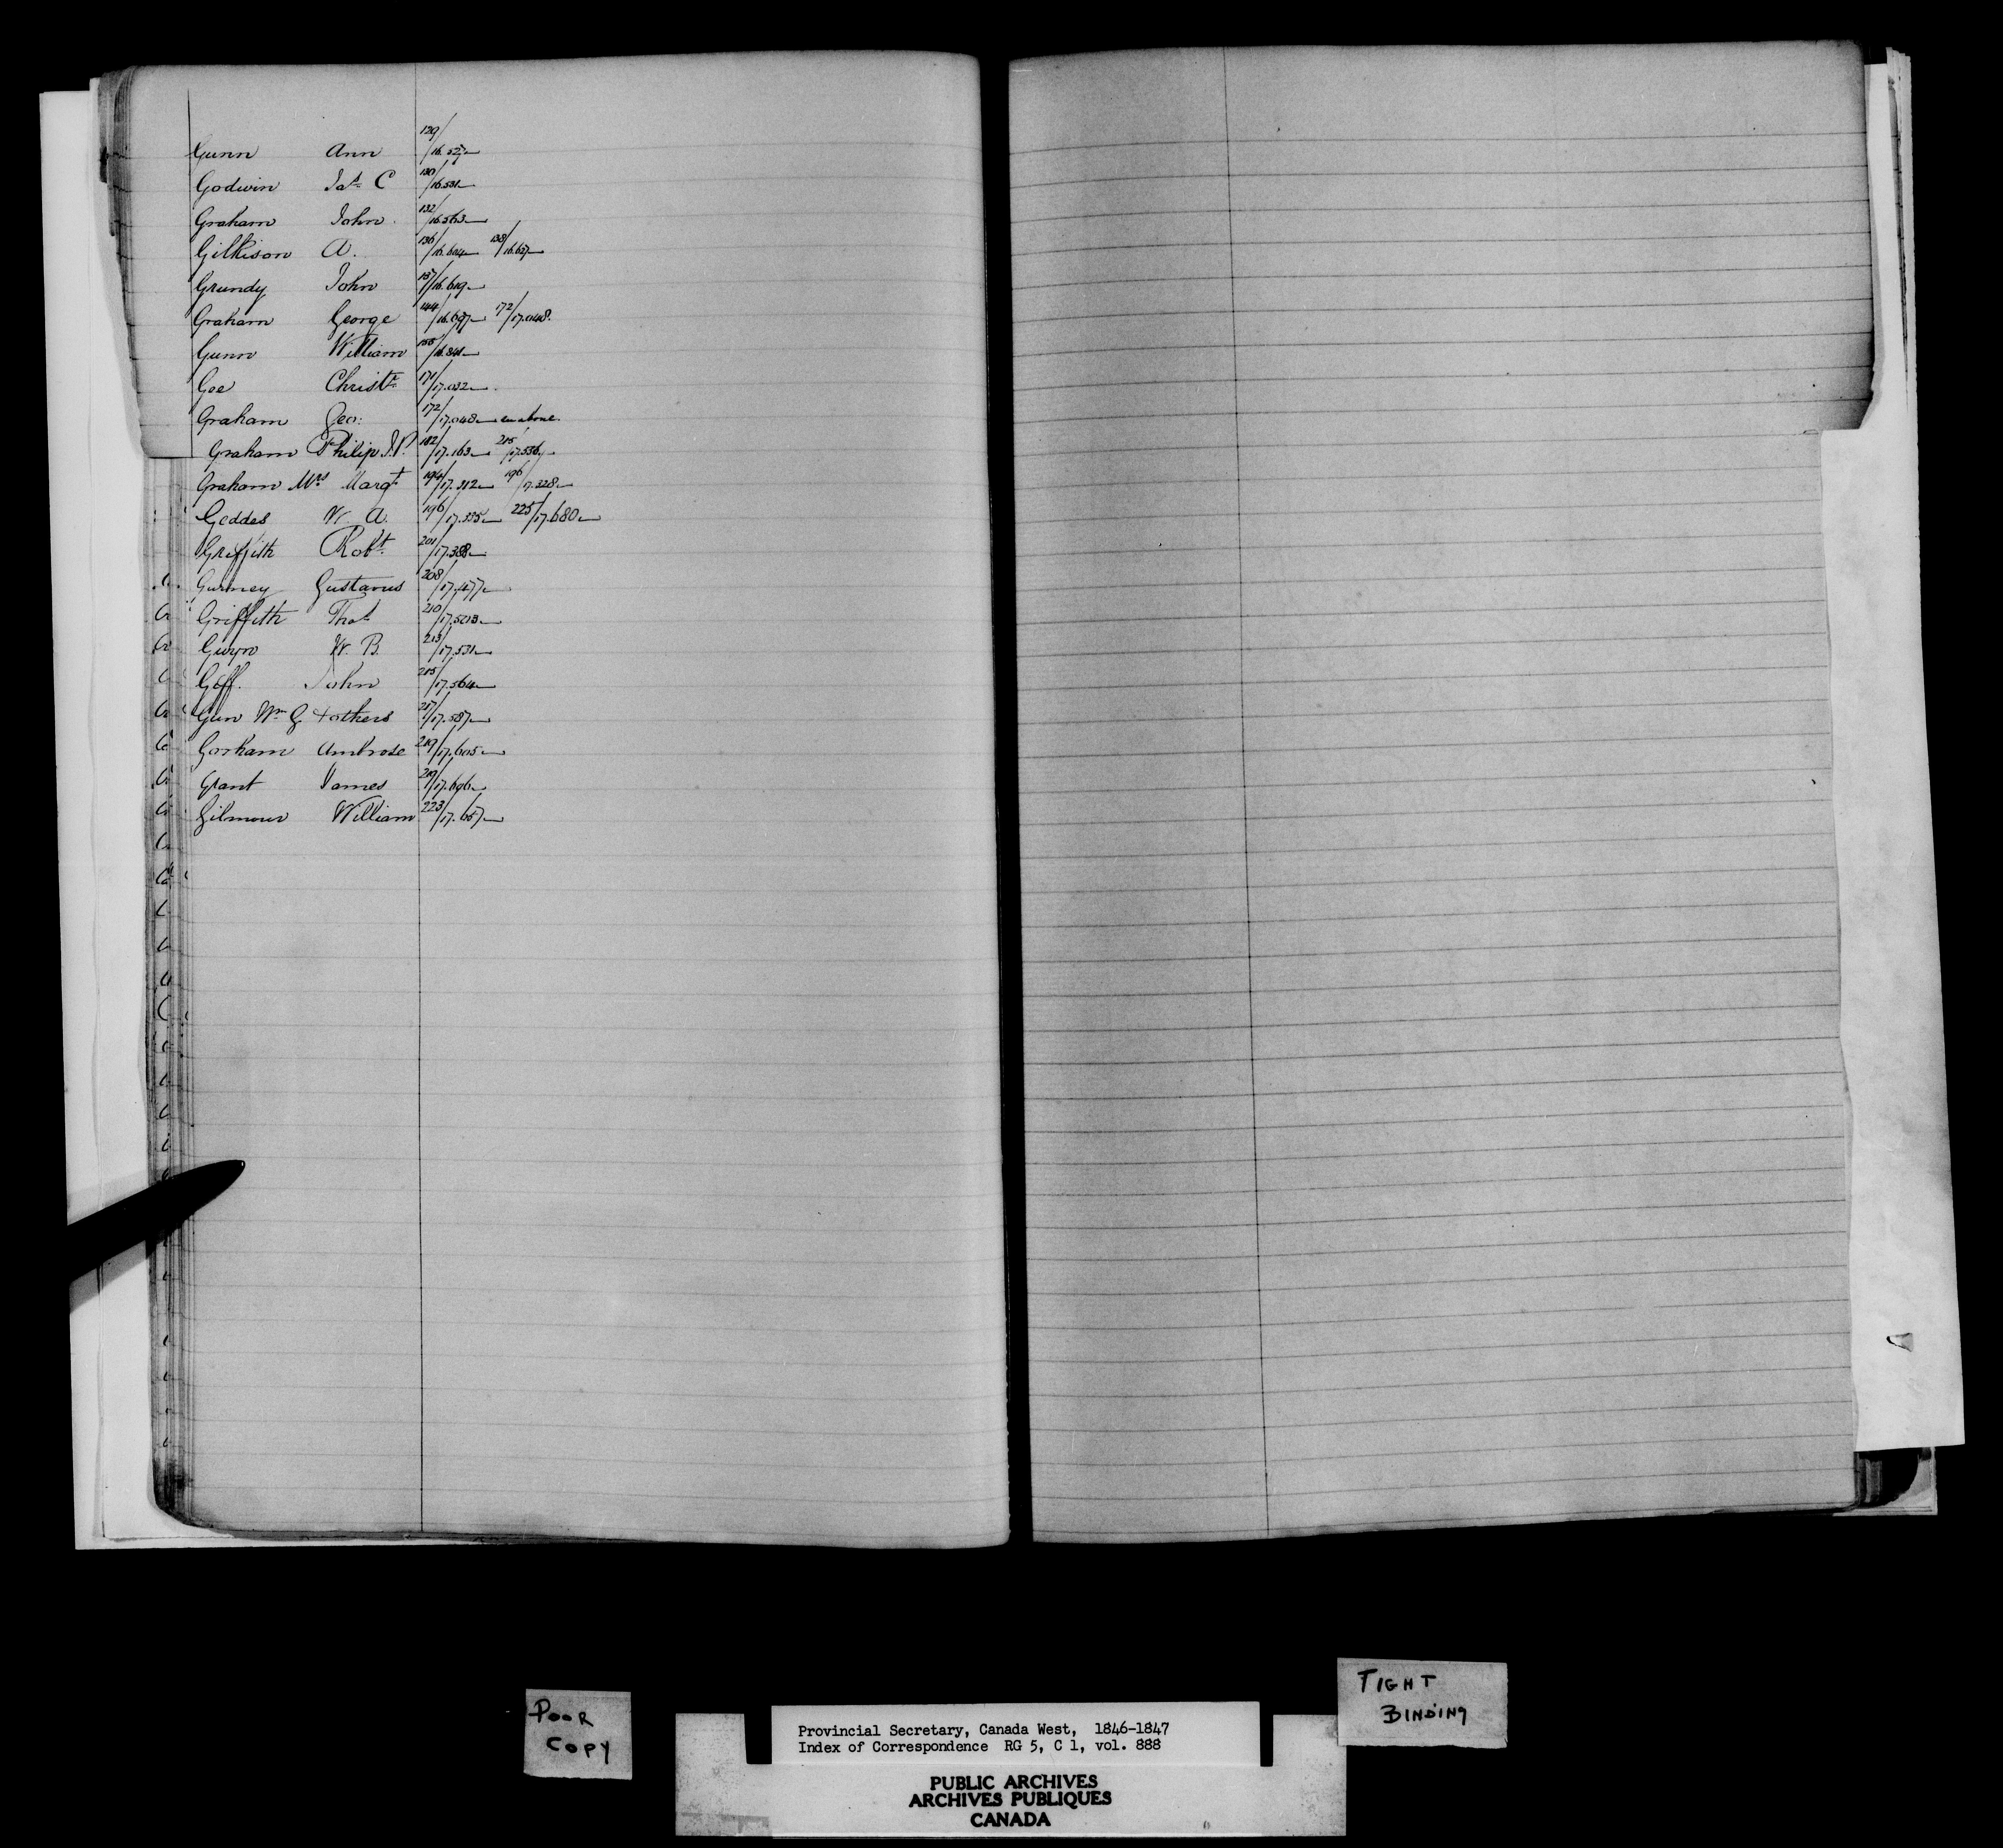 Gunn Ann 129/16.527
Godwin Jas. C 130/16.531
Graham John 132/16.563
Gilkison A. 136/16.604 138/16.627
Grundy John 137/16.619
Graham George 144/16.697 172/17.048.
Gunn William 155/16.841
Gee Christr. 171/17.032
Graham Geo: 172/17.048 as above.
Graham Philip J.P. 182/17.163 215/17.556
Graham Mrs Margt. 194/17.312 196/17.328
Geddes W. A. 196/17.335 225/17.680
Griffith Robt. 201/17.388
Gurney Gustavus 208/17.477
Griffith Thos. 210/17.503
Gwyn W. B. 213/17.531
Goff. John 215/17.564
Gun Wm G & others 217/17.587
Gorham Ambrose 219/17.605
Grant James 219/17.606
Gilmour William 223/17.657
POOR
COPY
TIGHT
BINDING
Provincial Secretary, Canada West, 1846-1847
Index of Correspondence RG 5, C 1, vol. 888
PUBLIC ARCHIVES
ARCHIVES PUBLIQUES
CANADA